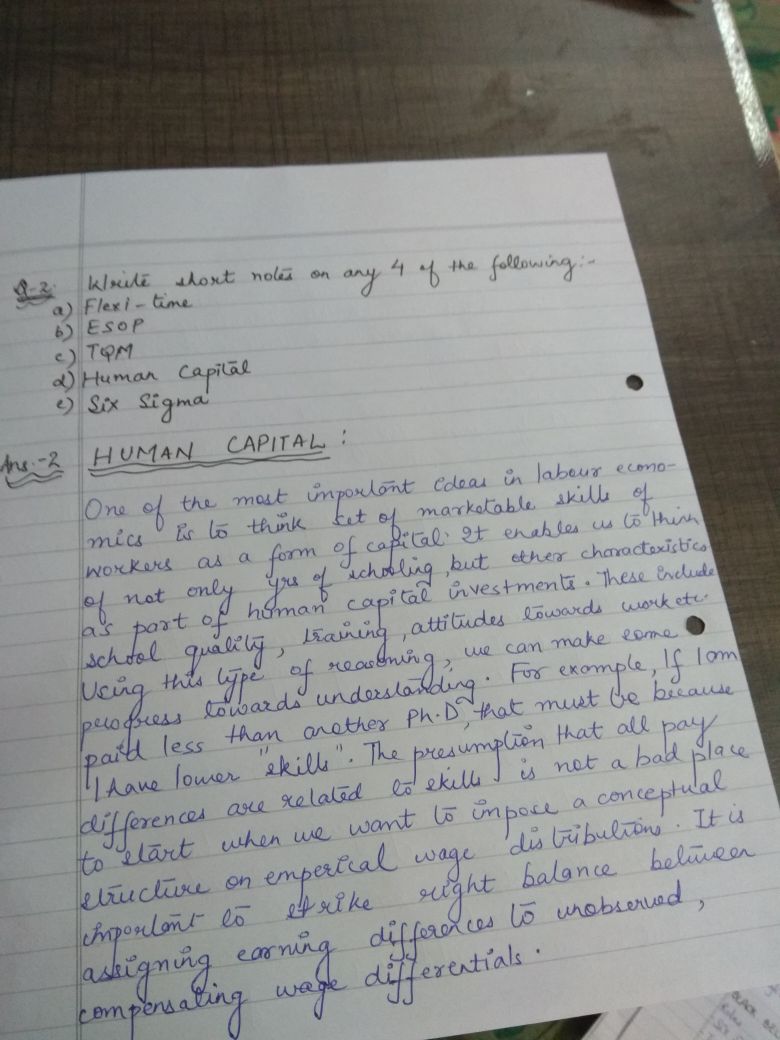 Q-2. Write short notes on any 4 of the following:-
a) Flexi-time
b) ESOP
c) TQM
d) Human Capital
e) Six Sigma
Ans.-2 HUMAN CAPITAL :
One of the most important ideas in labour econo-
mics is to think set of marketable skills of
workers as a form of capital. It enables us to think
of not only yrs of schooling, but other characteristics
as part of human capital investments. These include
school quality, training, attitudes towards work etc.
Using this type of reasoning, we can make some
progress towards understanding. For example, If I am
paid less than another Ph.D, that must be because
I have lower "skills". The presumption that all pay
differences are related to skills is not a bad place
to start when we want to impose a conceptual
structure on emperical wage distributions. It is
important to strike right balance between
assigning earning differences to unobserved,
compensating wage differentials.
BLACK